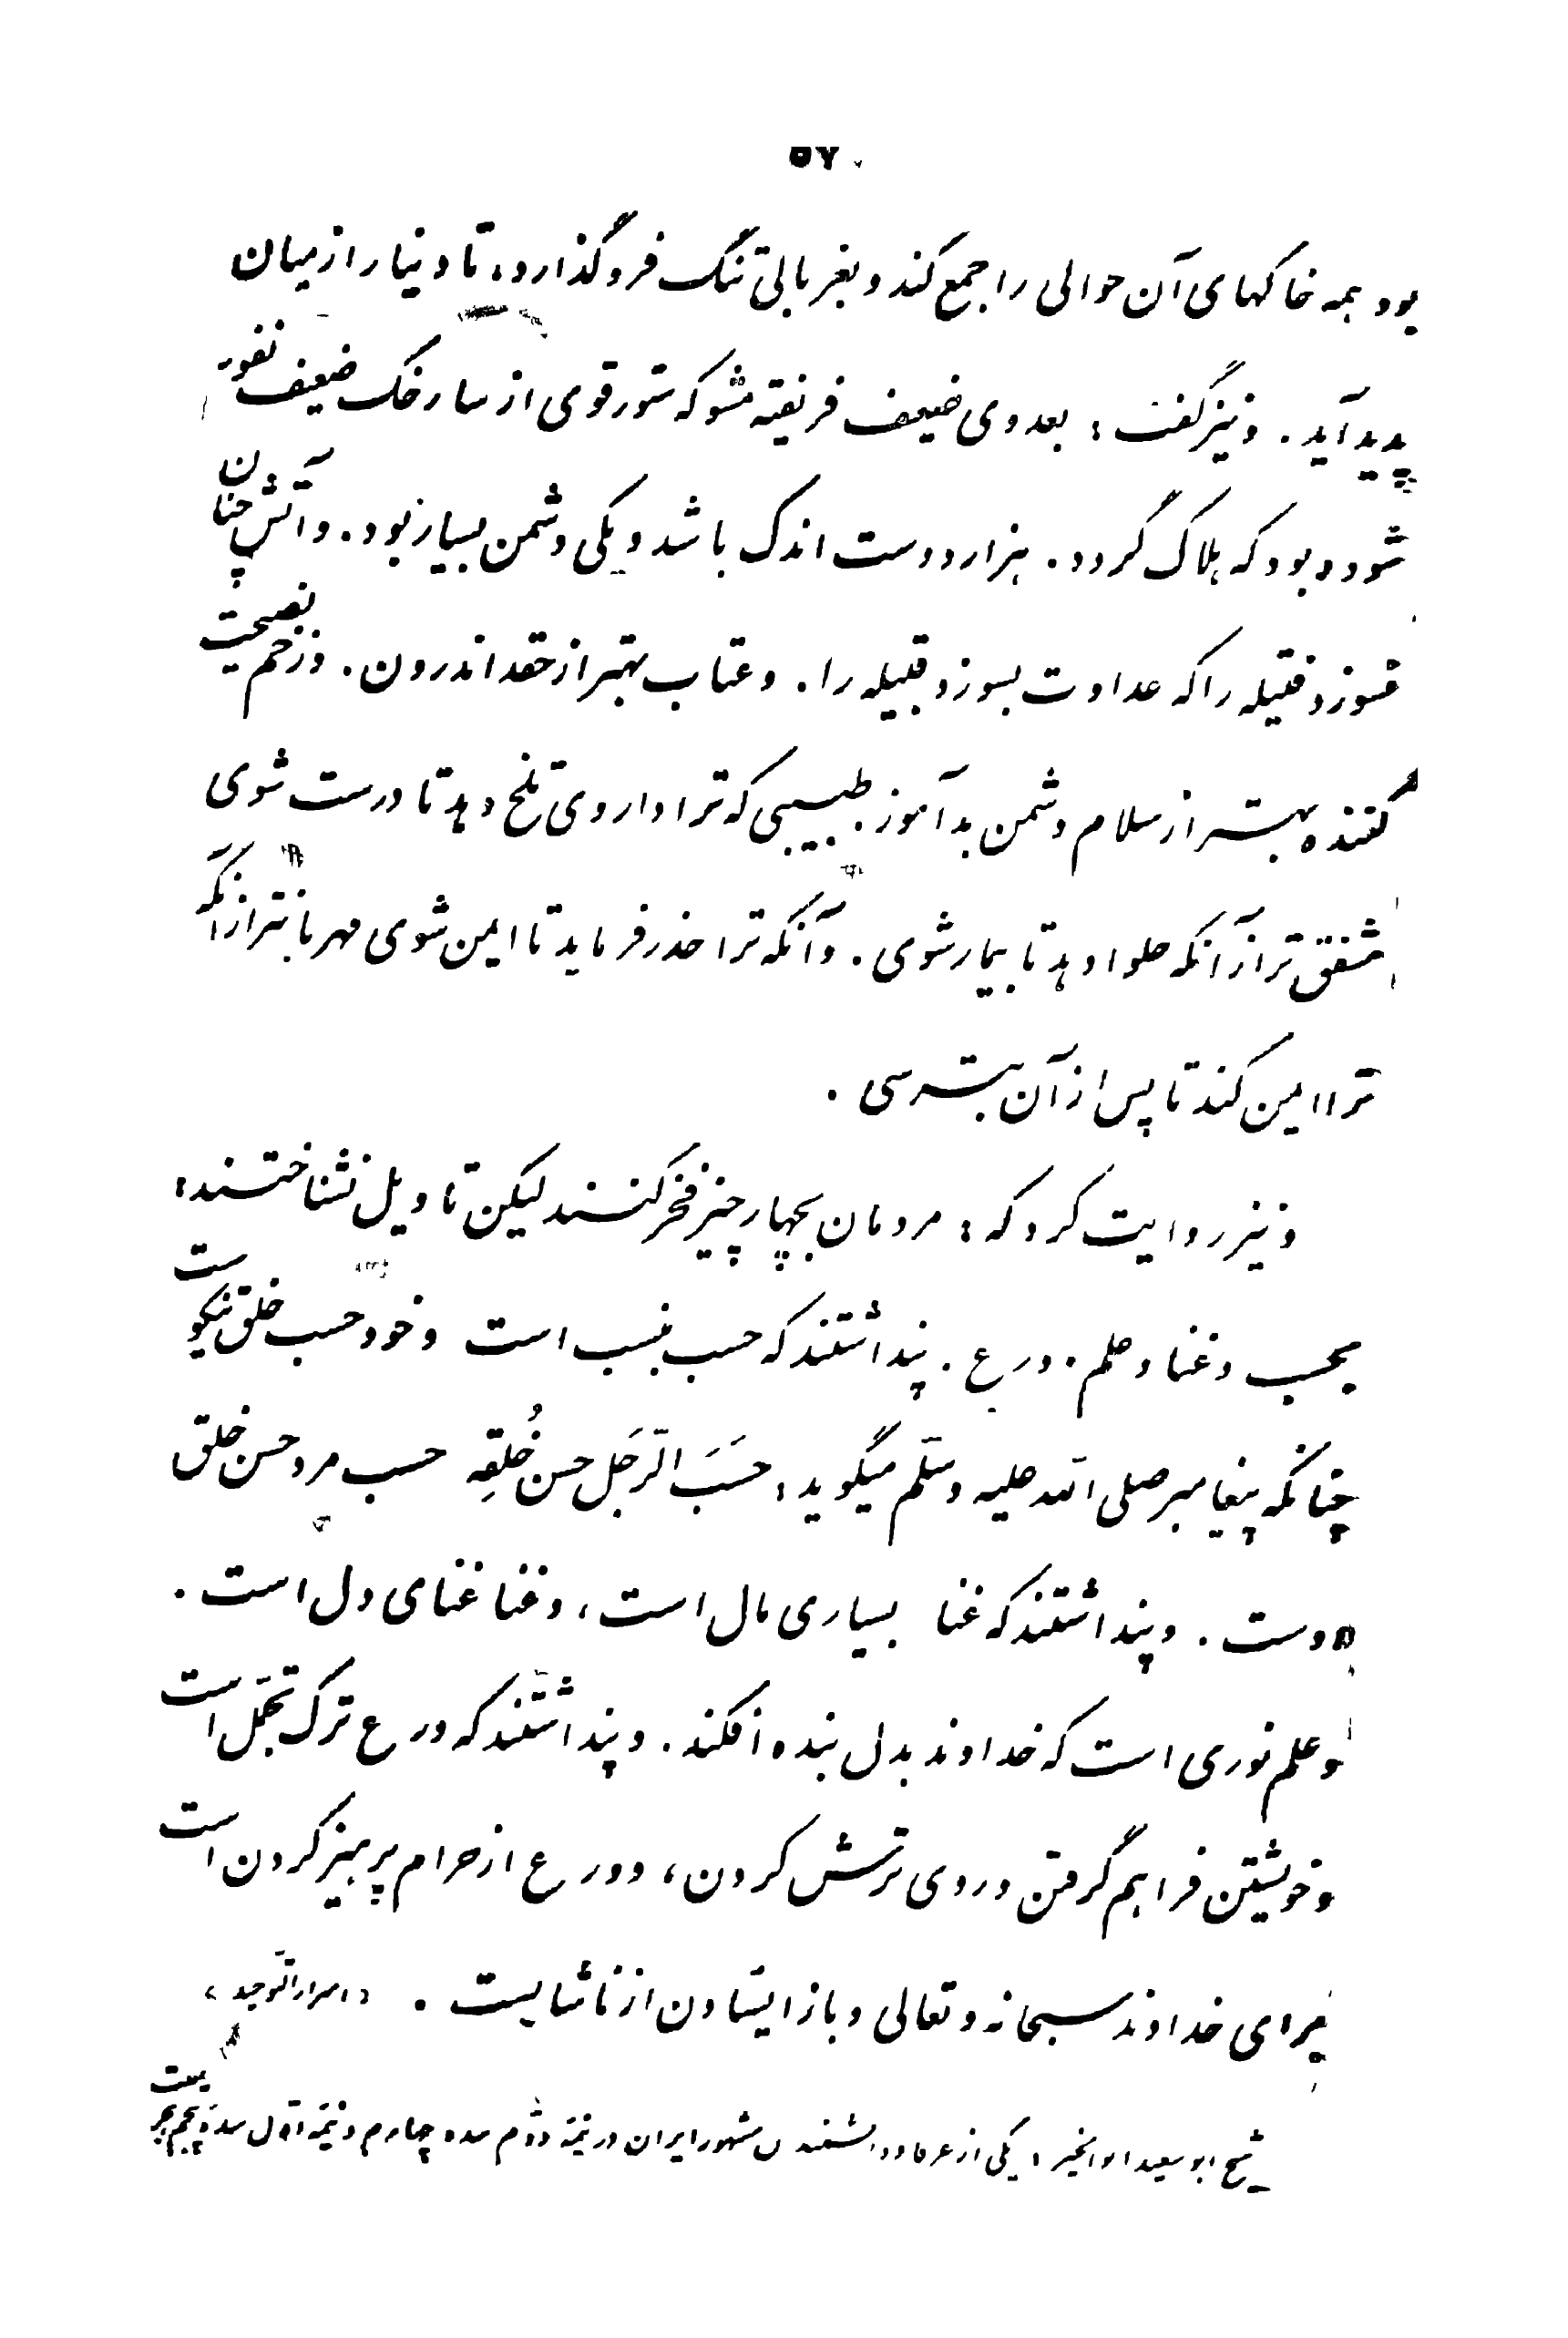 ۵۷
بود همه خاکهای آن حوالی را جمع کند و بغربالی تنگ فرو گذارد، تا دینار از میان
پدید آید. و نیز گفت: بعدوی ضعیف فریفته مشو که ستور قوی از سارخک ضعیف نفور
شود و بود که هلاک گردد. هزار دوست اندک باشد و یکی دشمن بسیار بود. و آتش چنان
نسوزد فتیله را که عداوت بسوزد قبیله را. و عتاب بهتر از حقد اندرون. و زخم نصیحت
کننده بهتر از سلام دشمن بدآموز. طبیبی که ترا داروی تلخ دهد تا درست شوی
مشفق تر از آنکه حلوا دهد تا بیمار شوی. و آنکه ترا حذر فرماید تا ایمن شوی مهربانتر از آنکه
ترا ایمن کند تا پس از آن بترسی.
و نیز روایت کرد که: مردمان بچهار چیز فخر کنند لیکن تاویل نشناختند:
بحسب و غنا و علم و ورع. پنداشتند که حسب بنسب است و خود حسب خلق نیکوست
چنانکه پیغامبر صلی الله علیه و سلّم میگوید: حَسَبَ الرّجَل حسن خُلقِه حسب مرد حسن خلق
اوست. و پنداشتند که غنا بسیاری مال است، و غنا غنای دل است.
و علم نوری است که خداوند بدل بنده افکند. و پنداشتند که ورع ترک تجمّل است
و خویشتن فراهم گرفتن و روی ترش کردن، و ورع از حرام پرهیز کردن است
برای خداوند سبحانه و تعالی و باز ایستادن از ناشایست. «اسرار التّوحید»
شیخ ابوسعید ابوالخیر، یکی از عرفا و دانشمندان مشهور ایران در نیمهٔ دوّم سده چهارم و نیمهٔ اوّل سدهٔ پنجم